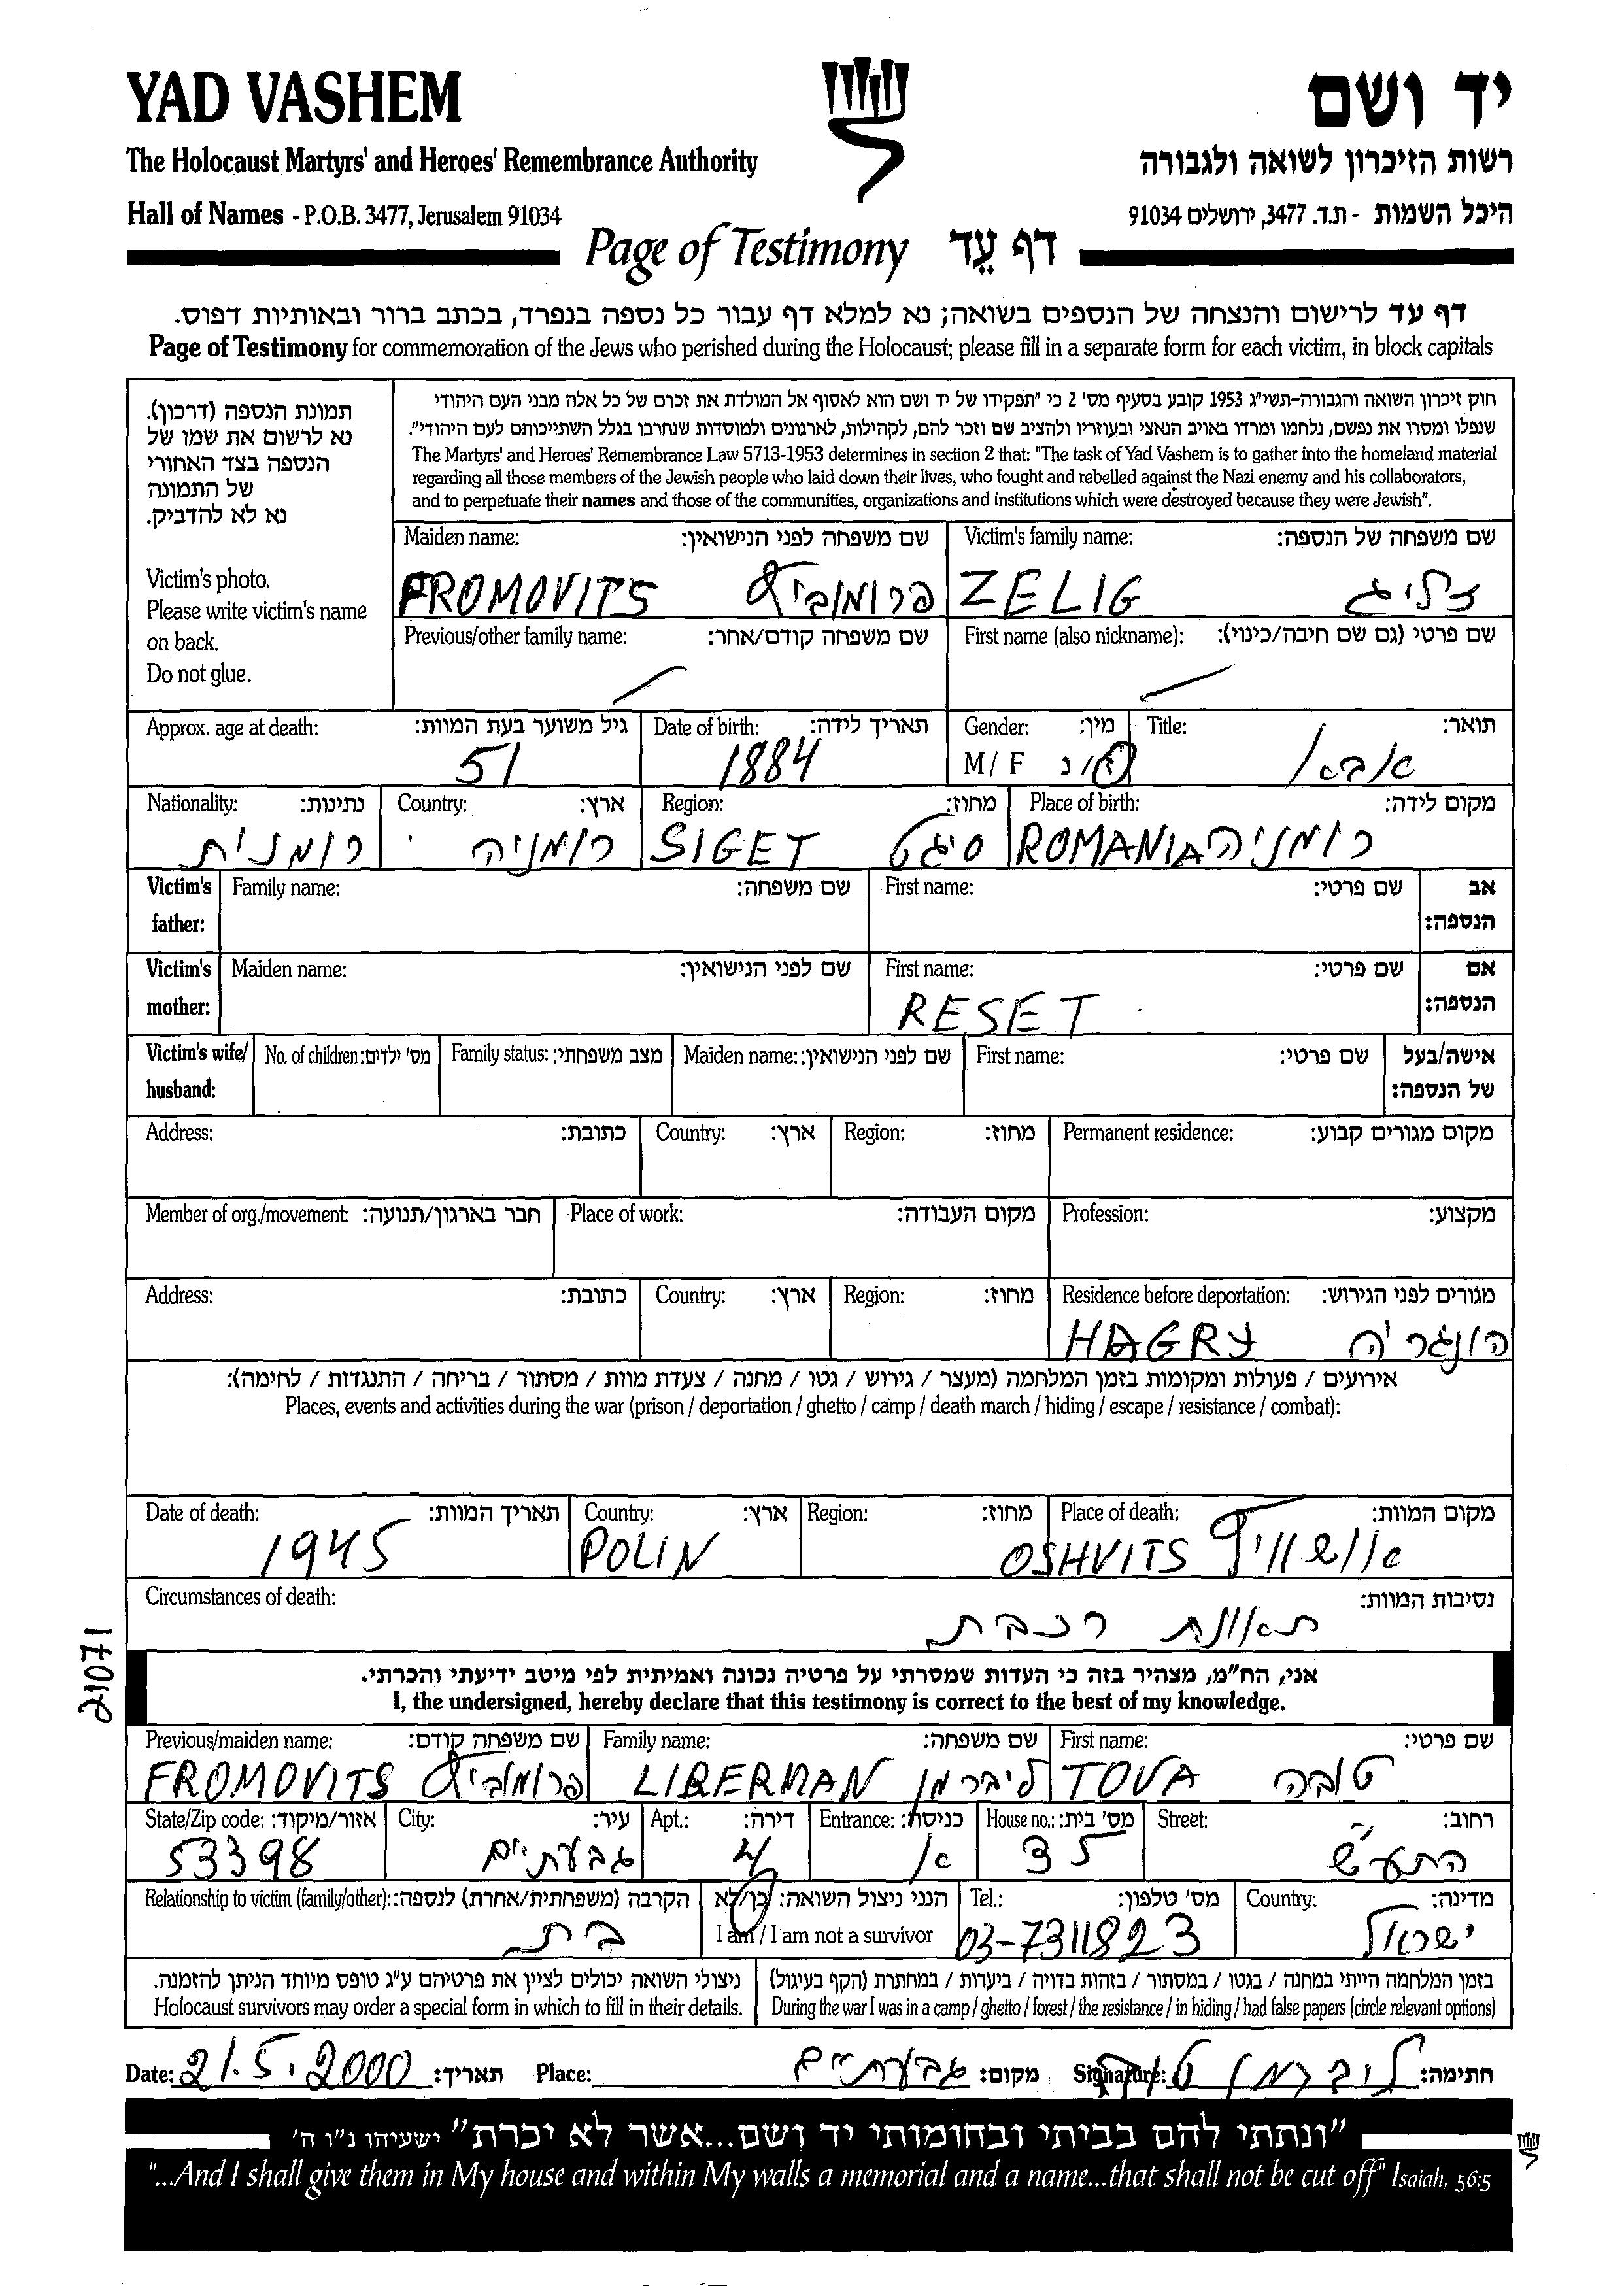 YAD VASHEM
יד ושם
The Holocaust Martyrs' and Heroes' Remembrance Authority
רשות הזיכרון לשואה ולגבורה
Hall of Names - P.O.B. 3477, Jerusalem 91034
היכל השמות - ת.ד. 3477, ירושלים 91034
Page of Testimony דף עֵד
דף עד לרישום והנצחה של הנספים בשואה; נא למלא דף עבור כל נספה בנפרד, בכתב ברור ובאותיות דפוס.
Page of Testimony for commemoration of the Jews who perished during the Holocaust; please fill in a separate form for each victim, in block capitals
תמונת הנספה (דרכון).
נא לרשום את שמו של
הנספה בצד האחורי
של התמונה
נא לא להדביק.
Victim's photo.
Please write victim's name
on back.
Do not glue.
חוק זיכרון השואה והגבורה-תשי"ג 1953 קובע בסעיף מס' 2 כי "תפקידו של יד ושם הוא לאסוף אל המולדת את זכרם של כל אלה מבני העם היהודי
שנפלו ומסרו את נפשם, נלחמו ומרדו באויב הנאצי ובעוזריו ולהציב שם וזכר להם, לקהילות, לארגונים ולמוסדות שנחרבו בגלל השתייכותם לעם היהודי".
The Martyrs' and Heroes' Remembrance Law 5713-1953 determines in section 2 that: "The task of Yad Vashem is to gather into the homeland material
regarding all those members of the Jewish people who laid down their lives, who fought and rebelled against the Nazi enemy and his collaborators,
and to perpetuate their names and those of the communities, organizations and institutions which were destroyed because they were Jewish".
Maiden name: שם משפחה לפני הנישואין: Victim's family name: שם משפחה של הנספה:
FROMOVITS פרומוביץ ZELIG זליג
Previous/other family name: שם משפחה קודם/אחר: First name (also nickname): שם פרטי (גם שם חיבה/כינוי):
Approx. age at death: גיל משוער בעת המוות: Date of birth: תאריך לידה: Gender: מין: Title: תואר:
51 1884 M / F ז/נ אבא
Nationality: נתינות: Country: ארץ: Region: מחוז: Place of birth: מקום לידה:
רומנית רומניה SIGET סיגט ROMANIA רומניה
Victim's father: Family name: שם משפחה: First name: שם פרטי: אב הנספה:
Victim's mother: Maiden name: שם לפני הנישואין: First name: שם פרטי: אם הנספה:
RESET
Victim's wife/ husband: No. of children: מס' ילדים: Family status: מצב משפחתי: Maiden name: שם לפני הנישואין: First name: שם פרטי: אישה/בעל של הנספה:
Address: כתובת: Country: ארץ: Region: מחוז: Permanent residence: מקום מגורים קבוע:
Member of org./movement: חבר בארגון/תנועה: Place of work: מקום העבודה: Profession: מקצוע:
Address: כתובת: Country: ארץ: Region: מחוז: Residence before deportation: מגורים לפני הגירוש:
HAGRY הונגריה
אירועים / פעולות ומקומות בזמן המלחמה (מעצר / גירוש / גטו / מחנה / צעדת מוות / מסתור / בריחה / התנגדות / לחימה):
Places, events and activities during the war (prison / deportation / ghetto / camp / death march / hiding / escape / resistance / combat):
Date of death: תאריך המוות: Country: ארץ: Region: מחוז: Place of death: מקום המוות:
1945 POLIN OSHVITS אושוויץ
Circumstances of death: נסיבות המוות:
תאונת רכבת
21071
אני, הח"מ, מצהיר בזה כי העדות שמסרתי על פרטיה נכונה ואמיתית לפי מיטב ידיעתי והכרתי.
I, the undersigned, hereby declare that this testimony is correct to the best of my knowledge.
Previous/maiden name: שם משפחה קודם: Family name: שם משפחה: First name: שם פרטי:
FROMOVITS פרומוביץ LIBERMAN ליברמן TOVA טובה
State/Zip code: אזור/מיקוד: City: עיר: Apt.: דירה: Entrance: כניסה: House no.: מס' בית: Street: רחוב:
53398 גבעתיים 4 א 35 התע"ש
Relationship to victim (family/other): הקרבה (משפחתית/אחרת) לנספה: הנני ניצול השואה: כן/לא Tel.: מס' טלפון: Country: מדינה:
בת I am / I am not a survivor 03-7311823 ישראל
ניצולי השואה יכולים לציין את פרטיהם ע"ג טופס מיוחד הניתן להזמנה.
Holocaust survivors may order a special form in which to fill in their details.
בזמן המלחמה הייתי במחנה / בגטו / במסתור / בזהות בדויה / ביערות / במחתרת (הקף בעיגול)
During the war I was in a camp / ghetto / forest / the resistance / in hiding / had false papers (circle relevant options)
Date: 21.5.2000 תאריך: Place: גבעתיים מקום: Signature: ליברמן טובה חתימה:
"ונתתי להם בביתי ובחומותי יד ושם...אשר לא יכרת" ישעיהו נ"ו ה'
"...And I shall give them in My house and within My walls a memorial and a name...that shall not be cut off" Isaiah, 56:5